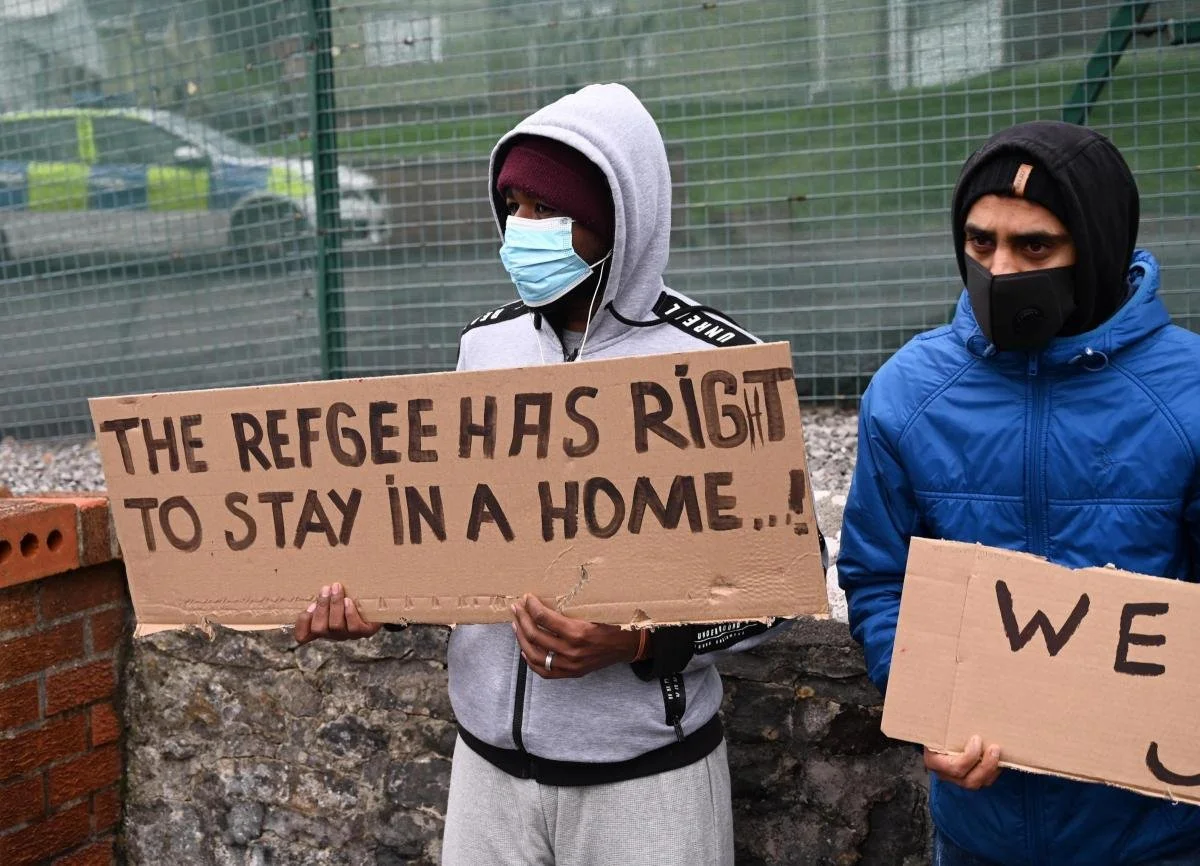 THE REFGEE HAS RiGHT
TO STAY iN A HOME...!
WE
UNREIL